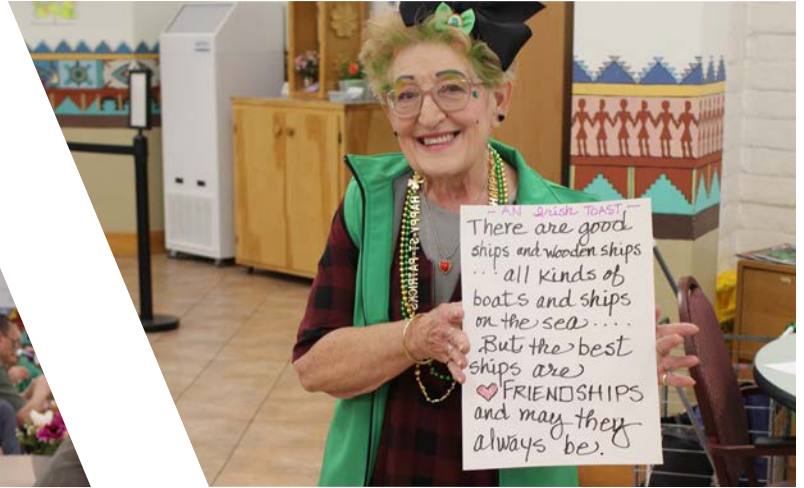 - AN Irish TOAST -
There are good
ships and wooden ships
... all kinds of
boats and ships
on the sea ....
But the best
ships are
♥ FRIENDSHIPS
and may they
always be.
HAPPY ST PATRICKS